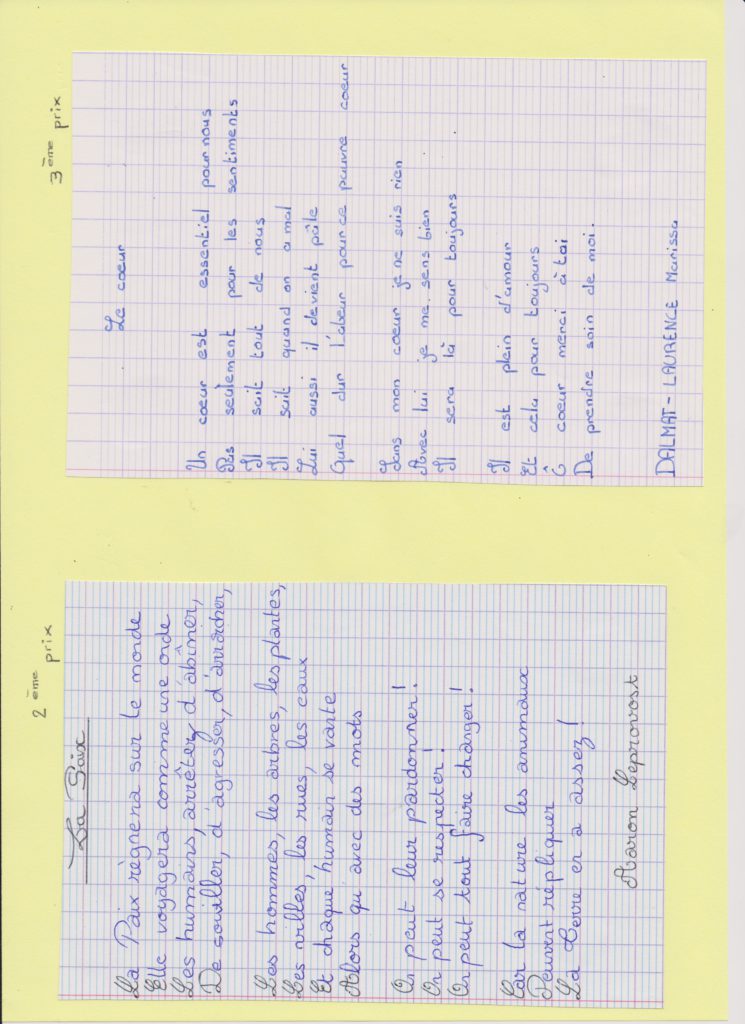 2ème prix
La Paix
La Paix règnera sur le monde
Elle voyagera comme une onde
Les humains, arrêtez, d'abîmer,
De souiller, d'agresser, d'arracher,
Les hommes, les arbres, les plantes,
Les villes, les rues, les eaux
Et chaque humain se vante
Alors qu'avec des mots
On peut leur pardonner!
On peut se respecter!
On peut tout faire changer!
Car la nature les animaux
Peuvent répliquer
La Terre en a assez!
Aaron Leprovost
3ème prix
Le coeur
Un coeur est essentiel pour nous
Pas seulement pour les sentiments
Il sait tout de nous
Il sait quand on a mal
Lui aussi il devient pâle
Quel dur l'abeur pour ce pauvre coeur
Sans mon coeur je ne suis rien
Avec lui je me sens bien
Il sera là pour toujours
Il est plein d'amour
Et cela pour toujours
Ô coeur merci à toi
De prendre soin de moi.
DALMAT-LAURENCE Marissa